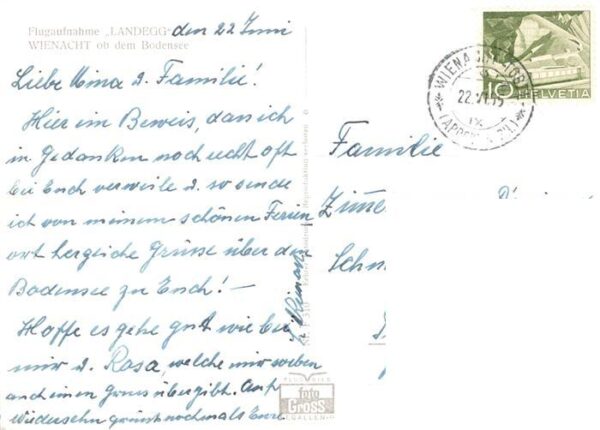 Flugaufnahme „LANDEGG"
WIENACHT ob dem Bodensee
den 22 Juni
Liebe Mina & Familie!
Hier im Beweis, dass ich
in Gedanken noch recht oft
bei Euch verweile & so sende
ich von meinem schönen Ferien
ort herzliche Grüsse über den
Bodensee zu Euch! –
Hoffe es gehe gut wie bei
mir & Rosa, welche mir soeben
auch einen Gruss übergibt. Auf
Wiedersehn grüsst nochmals Eure
Familie
Schn
10 HELVETIA
WIENACHT-TOB
22.VI.
IX
(APPENZELL)
foto
Gross